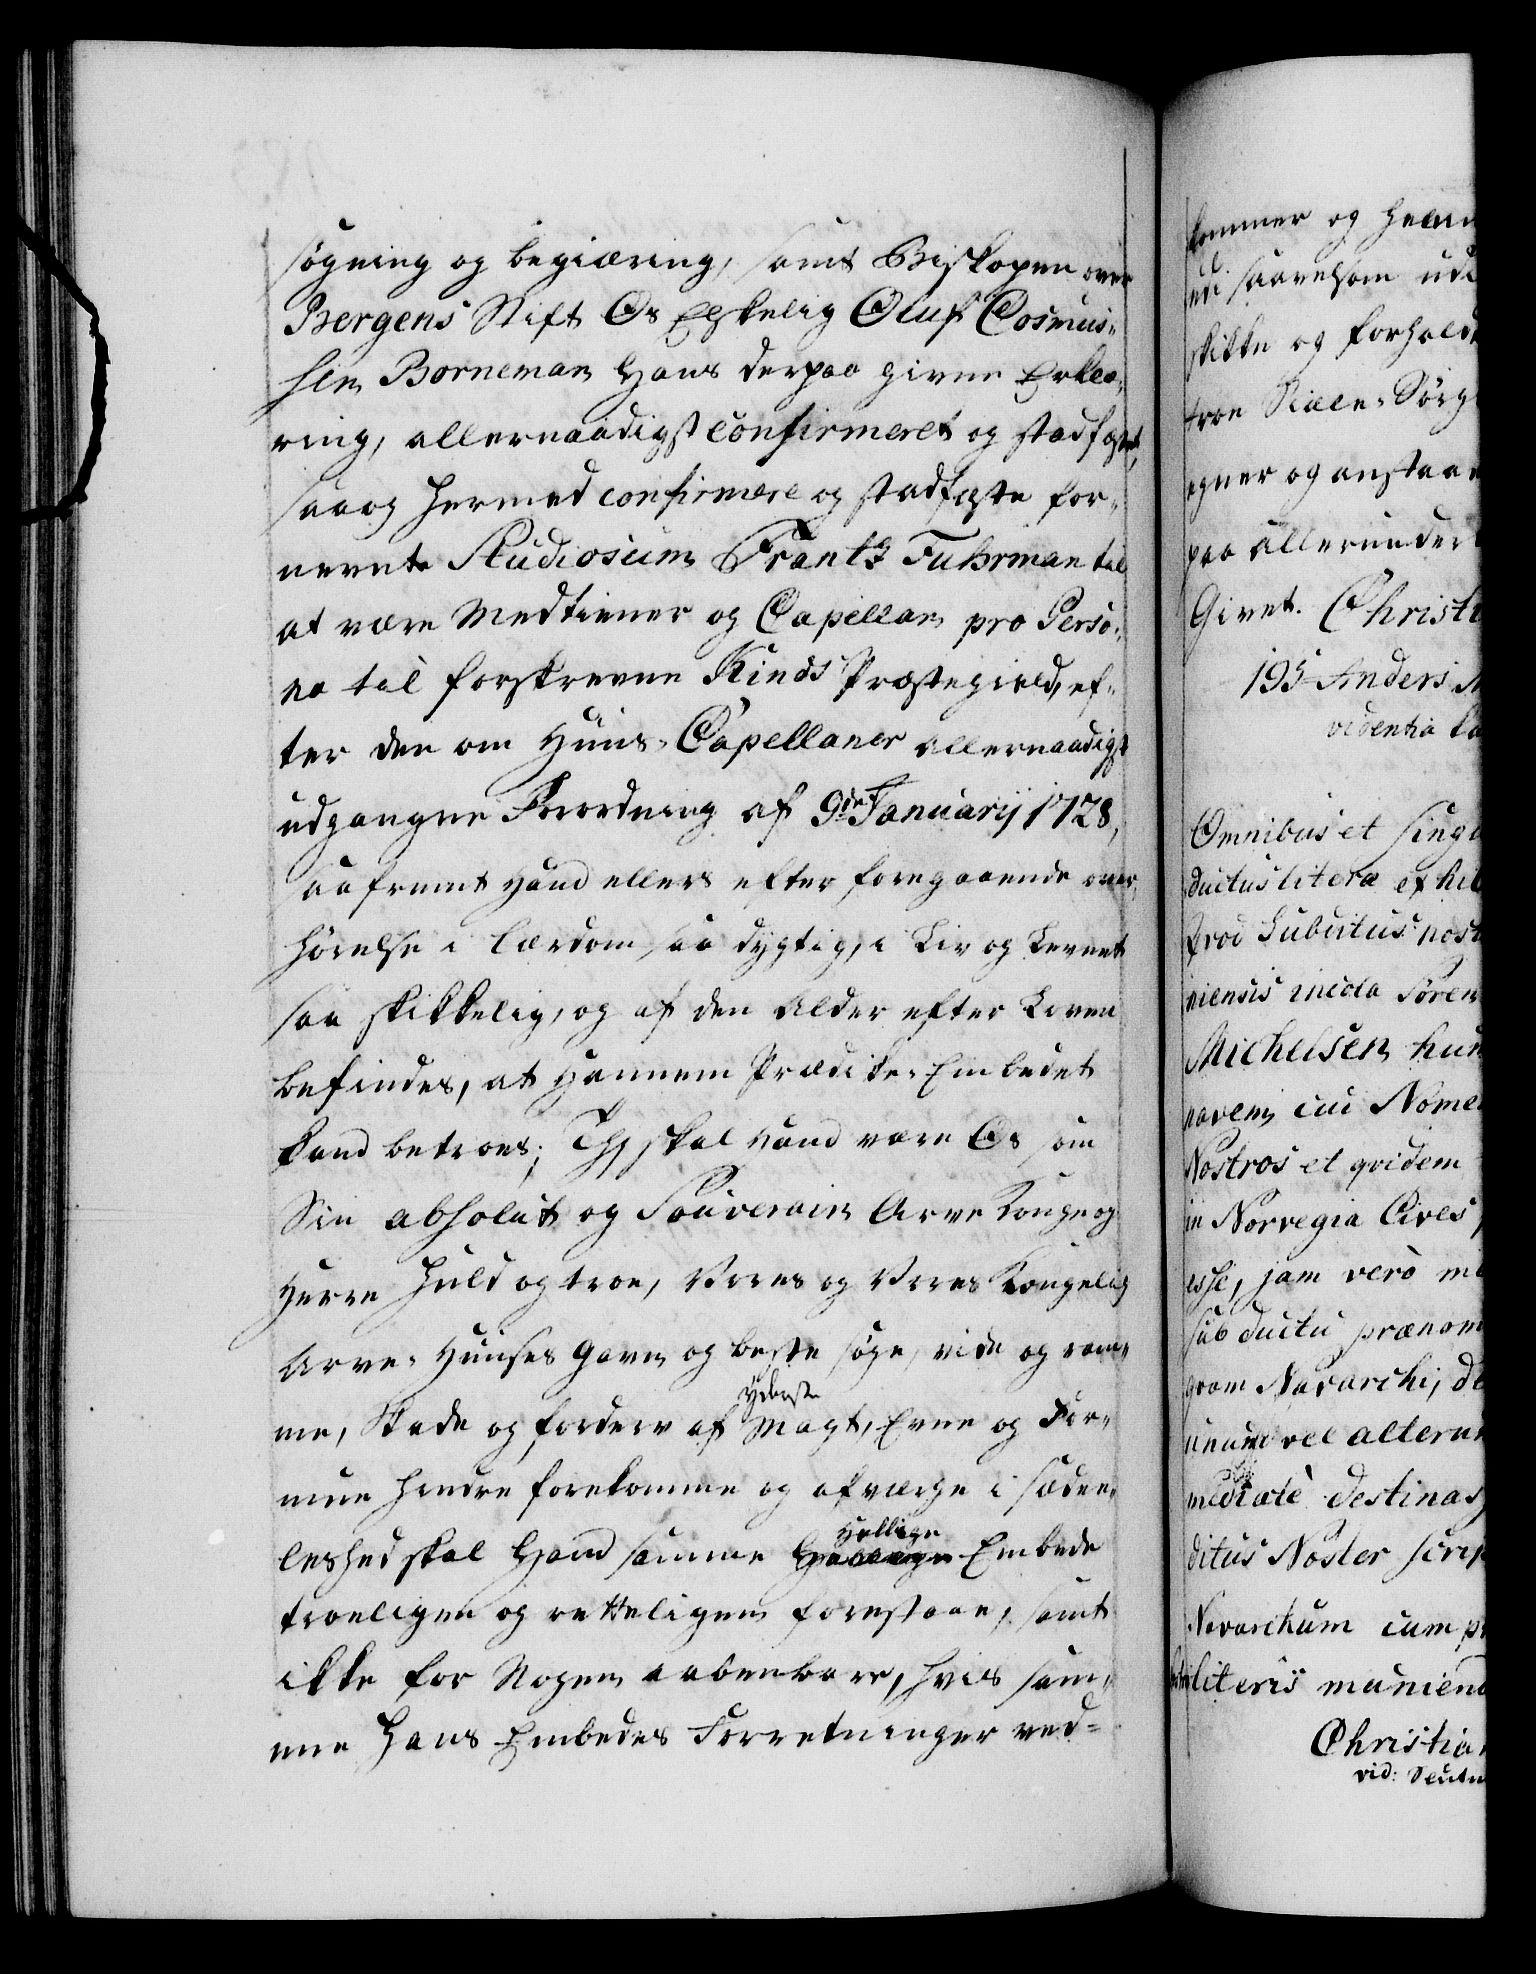 søgning og begiæring, samt Biskopen over
Bergens Stift Os Elskelig Oluf Cosmus-
sen Borneman Hans derpaa givne Erklæ-
ring, allernaadigst confirmeret og stadfæstet,
saa og hermed confirmere og stadfæste for-
nevnte Studiosum Frantz Fuhrman til
at være Medtiener og Capellan pro Perso-
na til forskrevne Kinds Præstegield, ef-
ter den om Huus-Capellaner allernaadigst
udgangne Forordning af 9de Januarij 1728,
saafremt Hand ellers efter foregaaende over-
hørelse i lærdom saa dygtig, i Liv og Levnet
saa skikkelig, og af den Alder efter Loven
befindes, at Hannem Prædike-Embedet
kand betroes; Thj skal Hand være Os som
Sin absolut og Souverain Arve Konge og
Herre huld og troe, Vores og Vores Kongelig
Arve-Huuses gavn og beste søge, vide og ram-
me, Skade og forderv af yderste Magt, Evne og For-
mue hindre forekomme og afværge i sæder-
leshed skal Hand samme Hellige Embede
troeligen og retteligen forestaae, samt
ikke for Nogen aabenbare, hvis sam-
me Hans Embedes Forretninger ved-
kommer og
saavelsom udi
skikke og forhold
troe Siæle-Sørg
egner og anstaar
paa allerunder
Givet. Christi
195 Anders
videntia
Omnibus et singu
ductus litera exhib
qvod Subditus nost
niensis incola Søren
Michelsen hun
navem cui Nomen
Nostros et qvidem
in Norvegia Cives
esse, jam verò
sub ductu prænom
qvam Navarchi, de
unum vel alterum
mediatè destinas
ditus Noster scrip
Navarchum cum
literis muniend
Christian
vid: